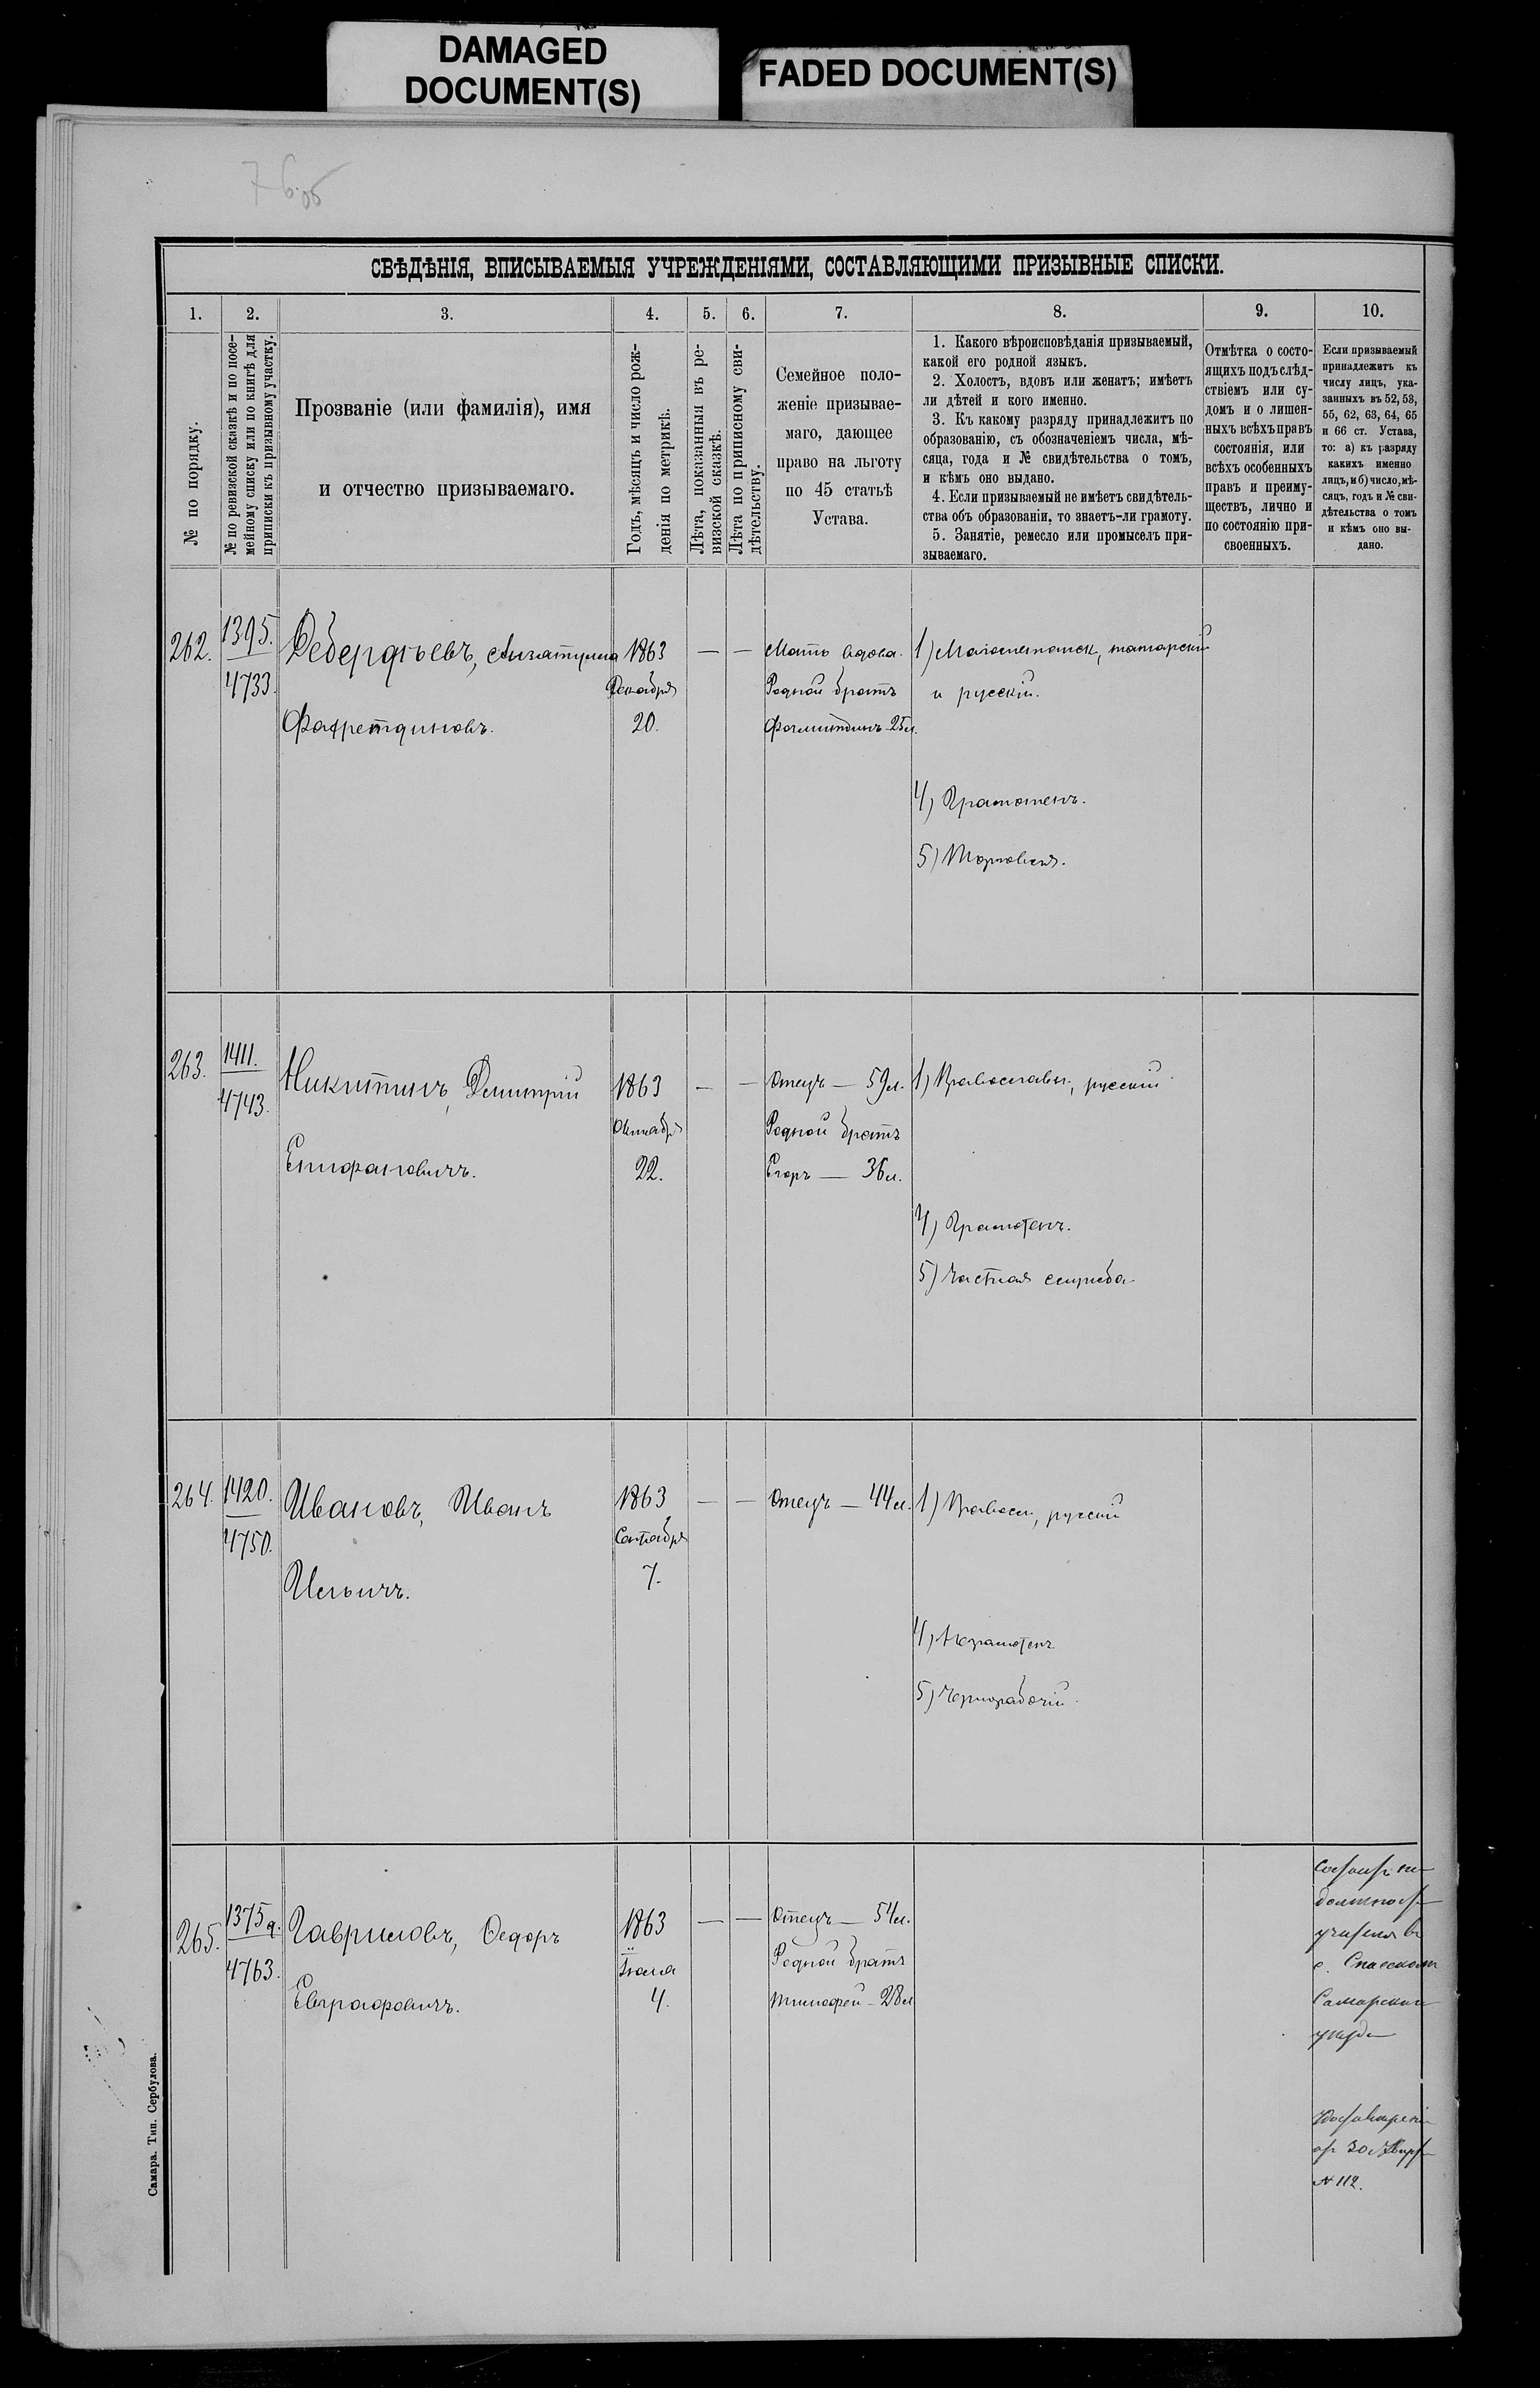 DAMAGED
DOCUMENT(S)
FADED DOCUMENT(S)
СВѢДѢНІЯ, ВПИСЫВАЕМЫЯ УЧРЕЖДЕНІЯМИ, СОСТАВЛЯЮЩИМИ ПРИЗЫВНЫЕ СПИСКИ.
1.
2.
3.
4.
5.
6.
7.
8.
9.
10.
№ по порядку.
№ по ревизской сказкѣ и по посе-
мейному списку или по книгѣ для
приписки къ призывному участку.
Прозваніе (или фамилія), имя
и отчество призываемаго.
Годъ, мѣсяцъ и число рож-
денія по метрикѣ.
Лѣта, показанныя въ ре-
визской сказкѣ.
Лѣта по приписному сви-
дѣтельству.
Семейное поло-
женіе призывае-
маго, дающее
право на льготу
по 45 статьѣ
Устава.
1. Какого вѣроисповѣданія призываемый,
какой его родной языкъ.
2. Холостъ, вдовъ или женатъ; имѣетъ
ли дѣтей и кого именно.
3. Къ какому разряду принадлежитъ по
образованію, съ обозначеніемъ числа, мѣ-
сяца, года и № свидѣтельства о томъ,
и кѣмъ оно выдано.
4. Если призываемый не имѣетъ свидѣтель-
ства объ образованіи, то знаетъ-ли грамоту.
5. Занятіе, ремесло или промыселъ при-
зываемаго.
Отмѣтка о состо-
ящихъ подъ слѣд-
ствіемъ или су-
домъ и о лишен-
ныхъ всѣхъ правъ
состоянія, или
всѣхъ особенныхъ
правъ и преиму-
ществъ, лично и
по состоянію при-
своенныхъ.
Если призываемый
принадлежитъ къ
числу лицъ, ука-
занныхъ въ 52, 53,
55, 62, 63, 64, 65
и 66 ст. Устава,
то: а) къ разряду
какихъ именно
лицъ, и б) число, мѣ-
сяцъ, годъ и № сви-
дѣтельства о томъ
и кѣмъ оно вы-
дано.
262.
1395.
4733.
Дебердѣевъ,
Фахретдиновъ.
1863
Декабря
20.
— —
Мать вдова.
Родной братъ
25 л.
1) Магометанск, татарскій
и русскій.
4) Грамотенъ.
5) Торговля.
263.
1411.
4743.
Никитинъ, Димитрій
Епифановичъ.
1863
Октября
22.
— —
Отецъ — 59 л.
Родной братъ
Егоръ — 36 л.
1) Православн, русскій
4) Грамотенъ.
5) Частная служба.
264.
1420.
4750.
Ивановъ, Иванъ
Ильичъ.
1863
Сентября
7.
— —
Отецъ — 44 л.
1) Правосл, русскій
4) Неграмотенъ
5) Чернорабочій.
265.
1375 а.
4763.
Гавриловъ, Федоръ
Евграфовичъ.
1863
Іюля
4.
— —
Отецъ — 54 л.
Родной братъ
Тимофей — 28 л
Состоитъ въ
должности
учителя въ
с. Спасскомъ
Самарскаго
уѣзда
№ 112.
Самара. Тип. Сербулова.